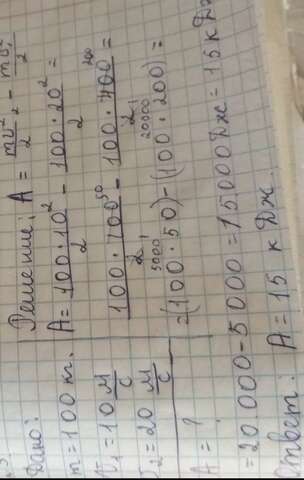 Дано:
m = 100 кг.
v₁ = 10 м/с
v₂ = 20 м/с
A = ?
Решение: A = mv₂²/2 - mv₁²/2
A = 100·10²/2 - 100·20²/2 =
100·100⁵⁰/2₁ - 100·400²⁰⁰/2₁ =
5000 20000
=(100·50)-(100·200) =
= 20.000-5000 = 15000 Дж = 15 кДж
Ответ: A = 15 кДж.